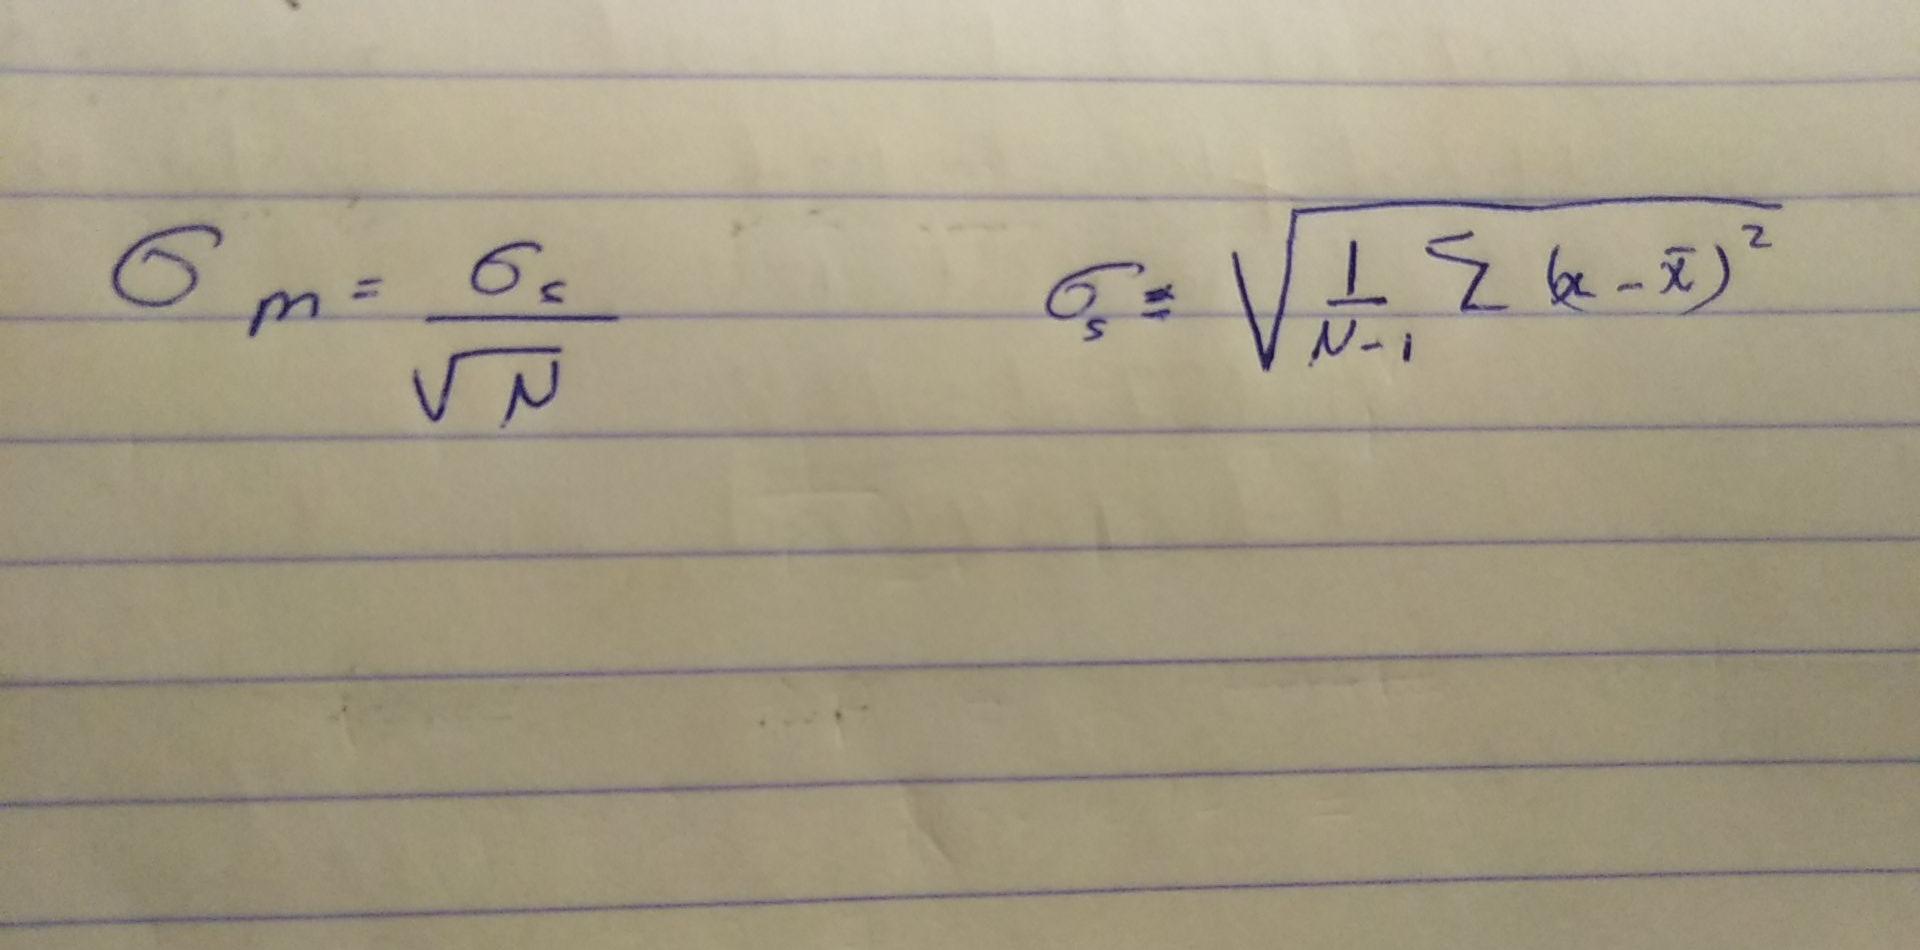 σₘ = σₛ / √N    σₛ = √(1/(N-1) Σ (x - x̄)²)